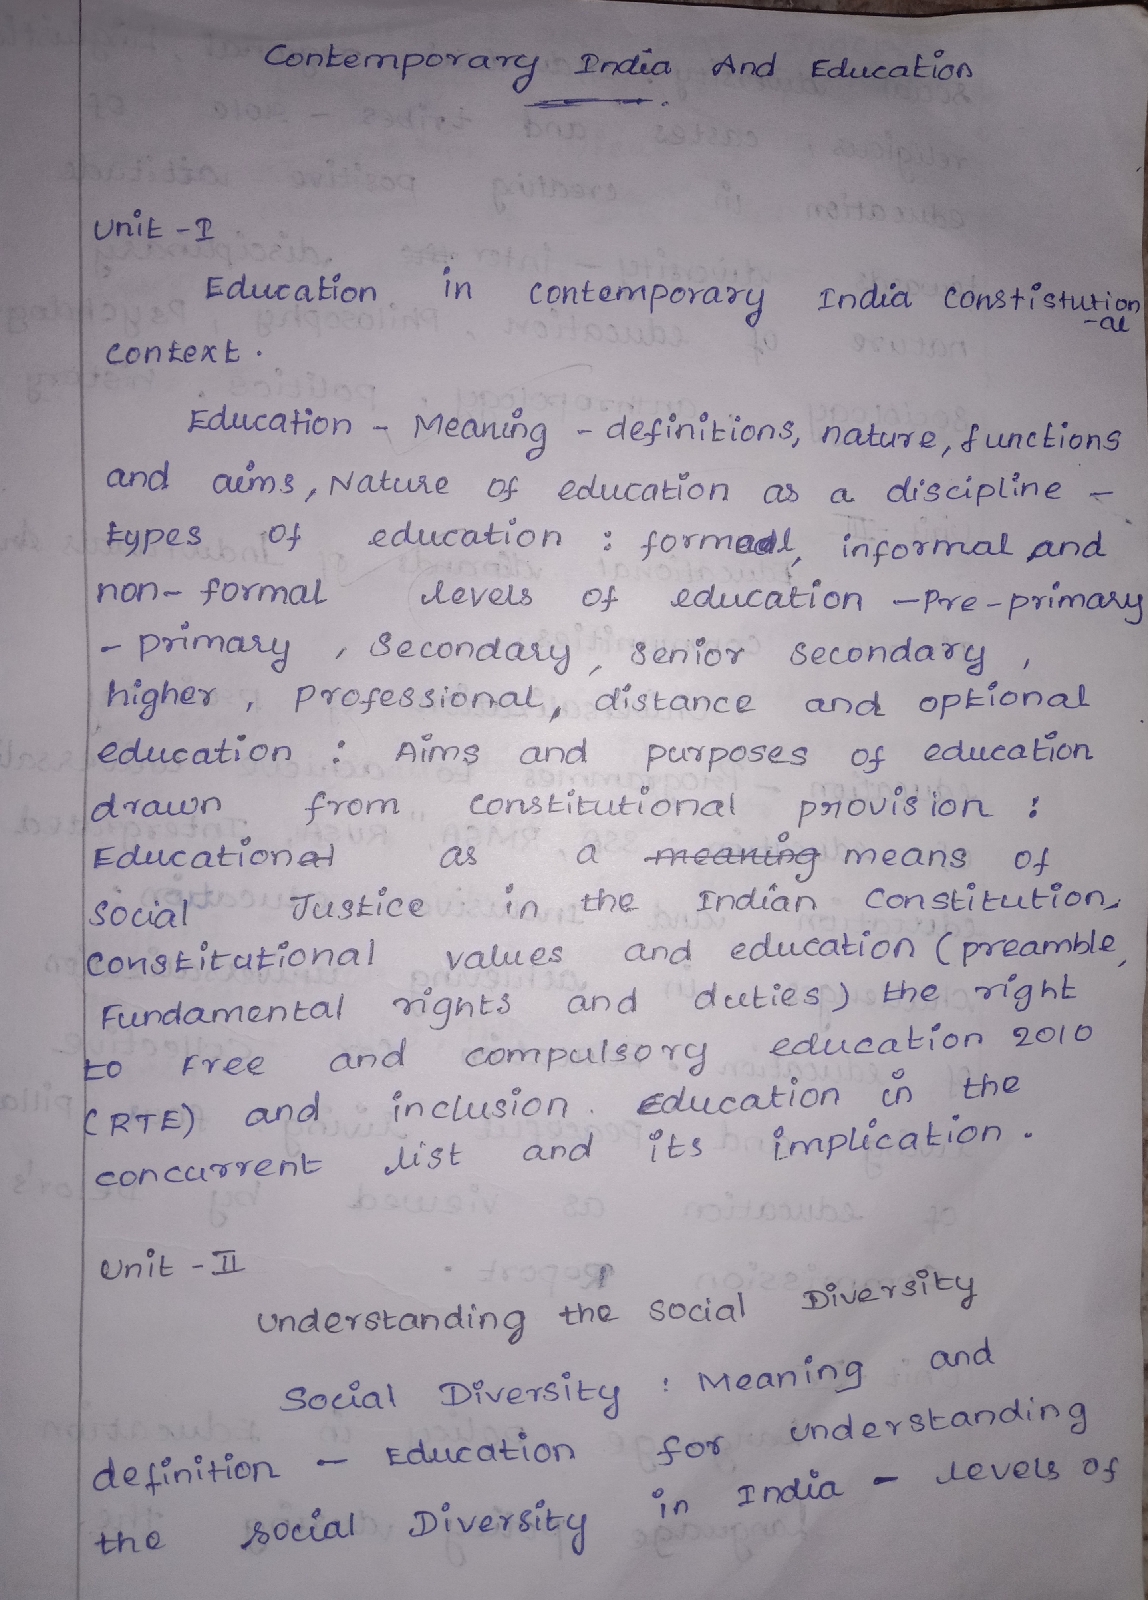 Contemporary India And Education
Unit - I
Education in contemporary India Constistution
-al
context.
Education - Meaning - definitions, nature, functions
and aims, Nature of education as a discipline -
types of education : formal, informal and
non- formal levels of education - Pre-primary
- primary, Secondary, senior secondary,
higher, professional, distance and optional
education : Aims and purposes of education
drawn from constitutional provision :
Education as a means of
social Justice in the Indian Constitution,
Constitutional values and education (preamble,
Fundamental rights and duties) the right
to Free and compulsory education 2010
(RTE) and inclusion. Education in the
concurrent list and its implication.
Unit - II
understanding the social Diversity
Social Diversity : Meaning and
definition - Education for understanding
the social Diversity in India - levels of